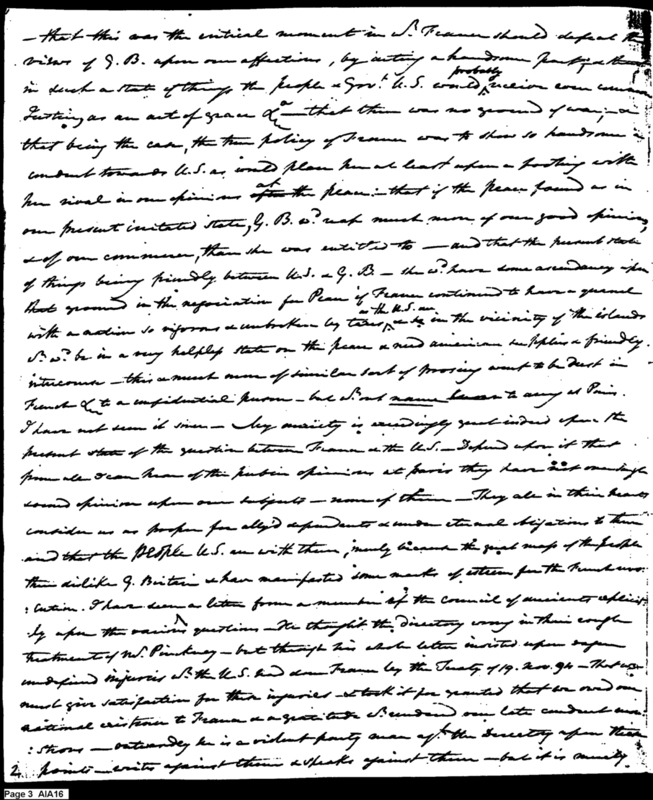 – that this was the critical moment in wh. France should defeat the
views of G. B. upon our affections, by acting a handsome part, & that
in such a state of things the people & Govt. U.S. would probably receive even common
Justice, as an act of grace &a – that there was no ground of war; – &
that being the case, the true policy of France was to show so handsome a
conduct towards U.S. as would place her at least upon a footing with
her rival in our opinions at the peace: – that if the peace found us in
our present irritated state, G. B. wd. reap much more of our good opinions,
& of our commerce, than she was entitled to – and that the present state
of things being friendly between U.S. & G. B. – she wd. have some ascendancy upon
that ground in the negociation for Peace if France continued to have a quarrel
with a nation so vigorous & unbroken by taxes as the U.S. are & in the vicinity of the islands
wh. wd. be in a very helpless state on the peace & need american supplies & friendly
intercourse – this & much more of similar sort of prosing went to be drest in
French & to a confidential person – but wh. not name to any at Paris.
I have not seen it since – My anxiety is exceedingly great indeed upon the
present state of the question between France & the U.S. – Depend upon it that
from all I can hear of the public opinions at paris they have not one single
sound opinion upon our subjects – none of them – They all in their hearts
consider us as proper for allyd dependents & under eternal obligations to them
and that the People U.S. are with them, merely because the great mass of the people
there dislike G. Britain & have manifested some marks of esteem for the french revo
:lution. I have seen a letter from a member of the Council of ancients explicit
ly upon the various questions – He thought the directory wrong in their rough
treatment of Mr. Pinckney – but through his whole letter insisted upon
undefined injuries wh. the U.S. had done France by the Treaty of 19. Nov. 94 – that we
must give satisfaction for these injuries – & took it for granted that we owed our
national existence to France & a gratitude wh. rendered our late conduct mon
:strous – outwardly he is a violent party man agt. the directory upon these
points – writes against them & speaks against them – but it is merely
2
Page 3 AIA16